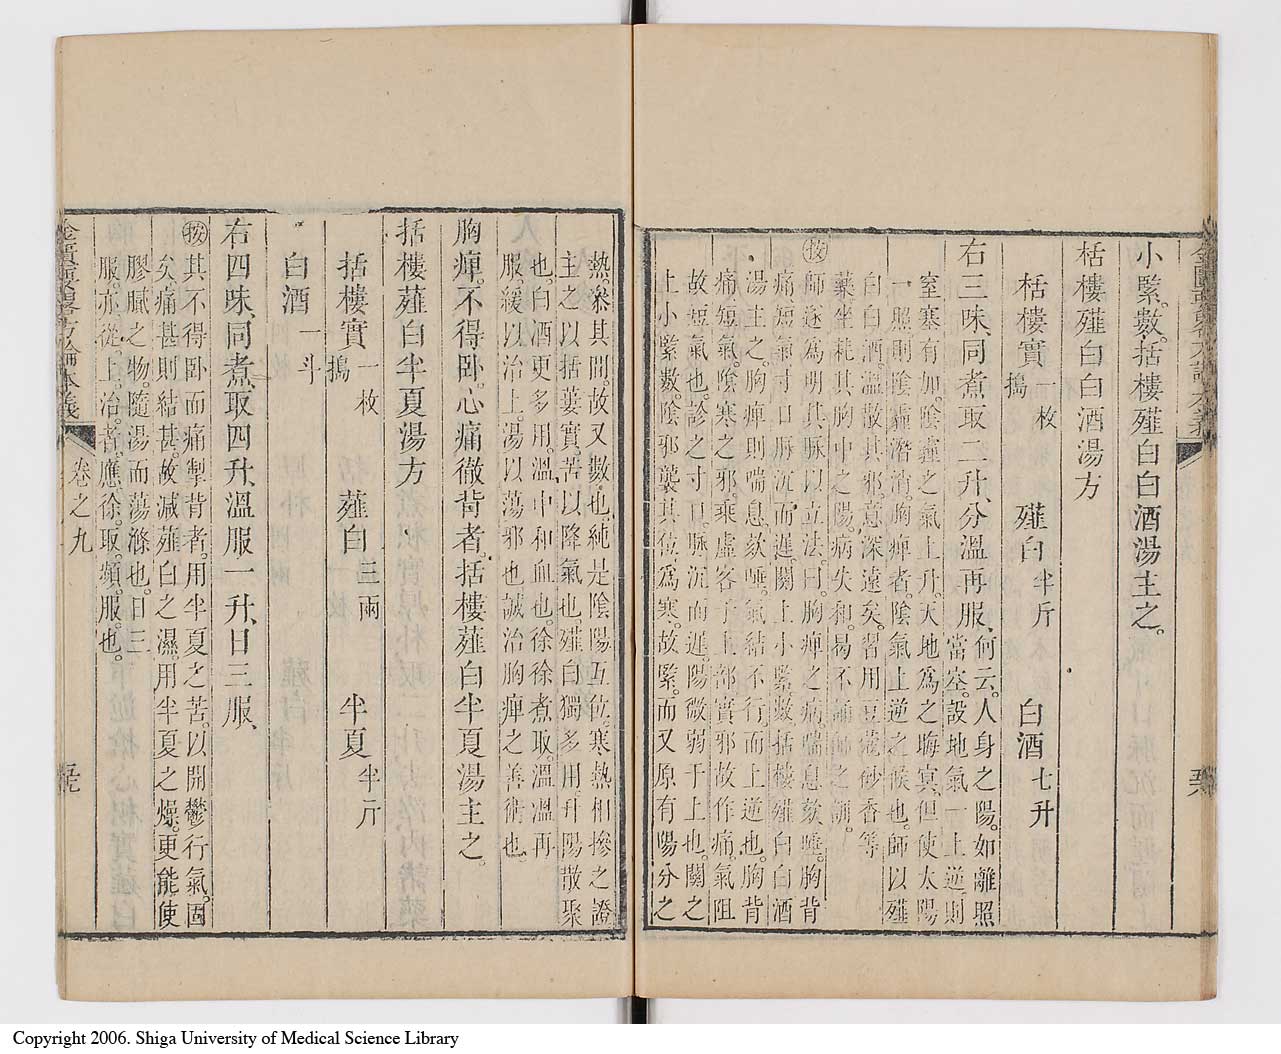 小緊數。括樓薤白白酒湯主之。
栝樓薤白白酒湯方
栝樓實一枚搗 薤白半斤 白酒七升
右三味、同煮取二升、分溫再服、何云。人身之陽。如離照
當空。設地氣一上逆則
窒塞有如。陰霾之氣上升。天地爲之晦冥。但使太陽
一照則陰霾潛消。胸痺者陰氣上逆之候也。師以薤
白白酒。溫散其邪。意深遠矣。習用豆蔻砂香等
藥坐耗其胸中之陽。病失和。曷不誦師之訓。
按師遂爲明其脈以立法。曰。胸痺之病。喘息欬唾。胸背
痛。短氣。寸口脈沉而遲。關上小緊數。括樓薤白白酒
湯主之。胸痺則喘息。欬唾。氣結不行而上逆也。胸背
痛。短氣。陰寒之邪。乘虛客于上部實邪故作痛。氣阻
故短氣也。診之寸口。脈沉而遲。陽微弱于上也。關之
上小緊數。陰邪襲其位。爲寒。故緊。而又原有陽分之
熱。參其間。故又數也。純是陰陽互伏。寒熱相摻之證
主之以括蔞實。苦以降氣也。薤白獨多用升陽散聚
也。白酒更多用。溫中和血也。徐徐煮取。溫溫再
服。緩以治上。湯以蕩邪也。誠治胸痺之善術也。
胸痺。不得卧。心痛徹背者。括樓薤白半夏湯主之。
括樓薤白半夏湯方
括樓實一枚搗 薤白三兩 半夏半斤
白酒一斗
右四味、同煮、取四升、溫服一升、日三服、
按其不得卧而痛掣背者。用半夏之苦。以開鬱行氣。固
矣。痛甚則結甚。故减薤白之濕。用半夏之燥。更能使
膠膩之物。隨湯而蕩滌也。日三
服。亦從上治者。應徐取頻服也。
卷之九